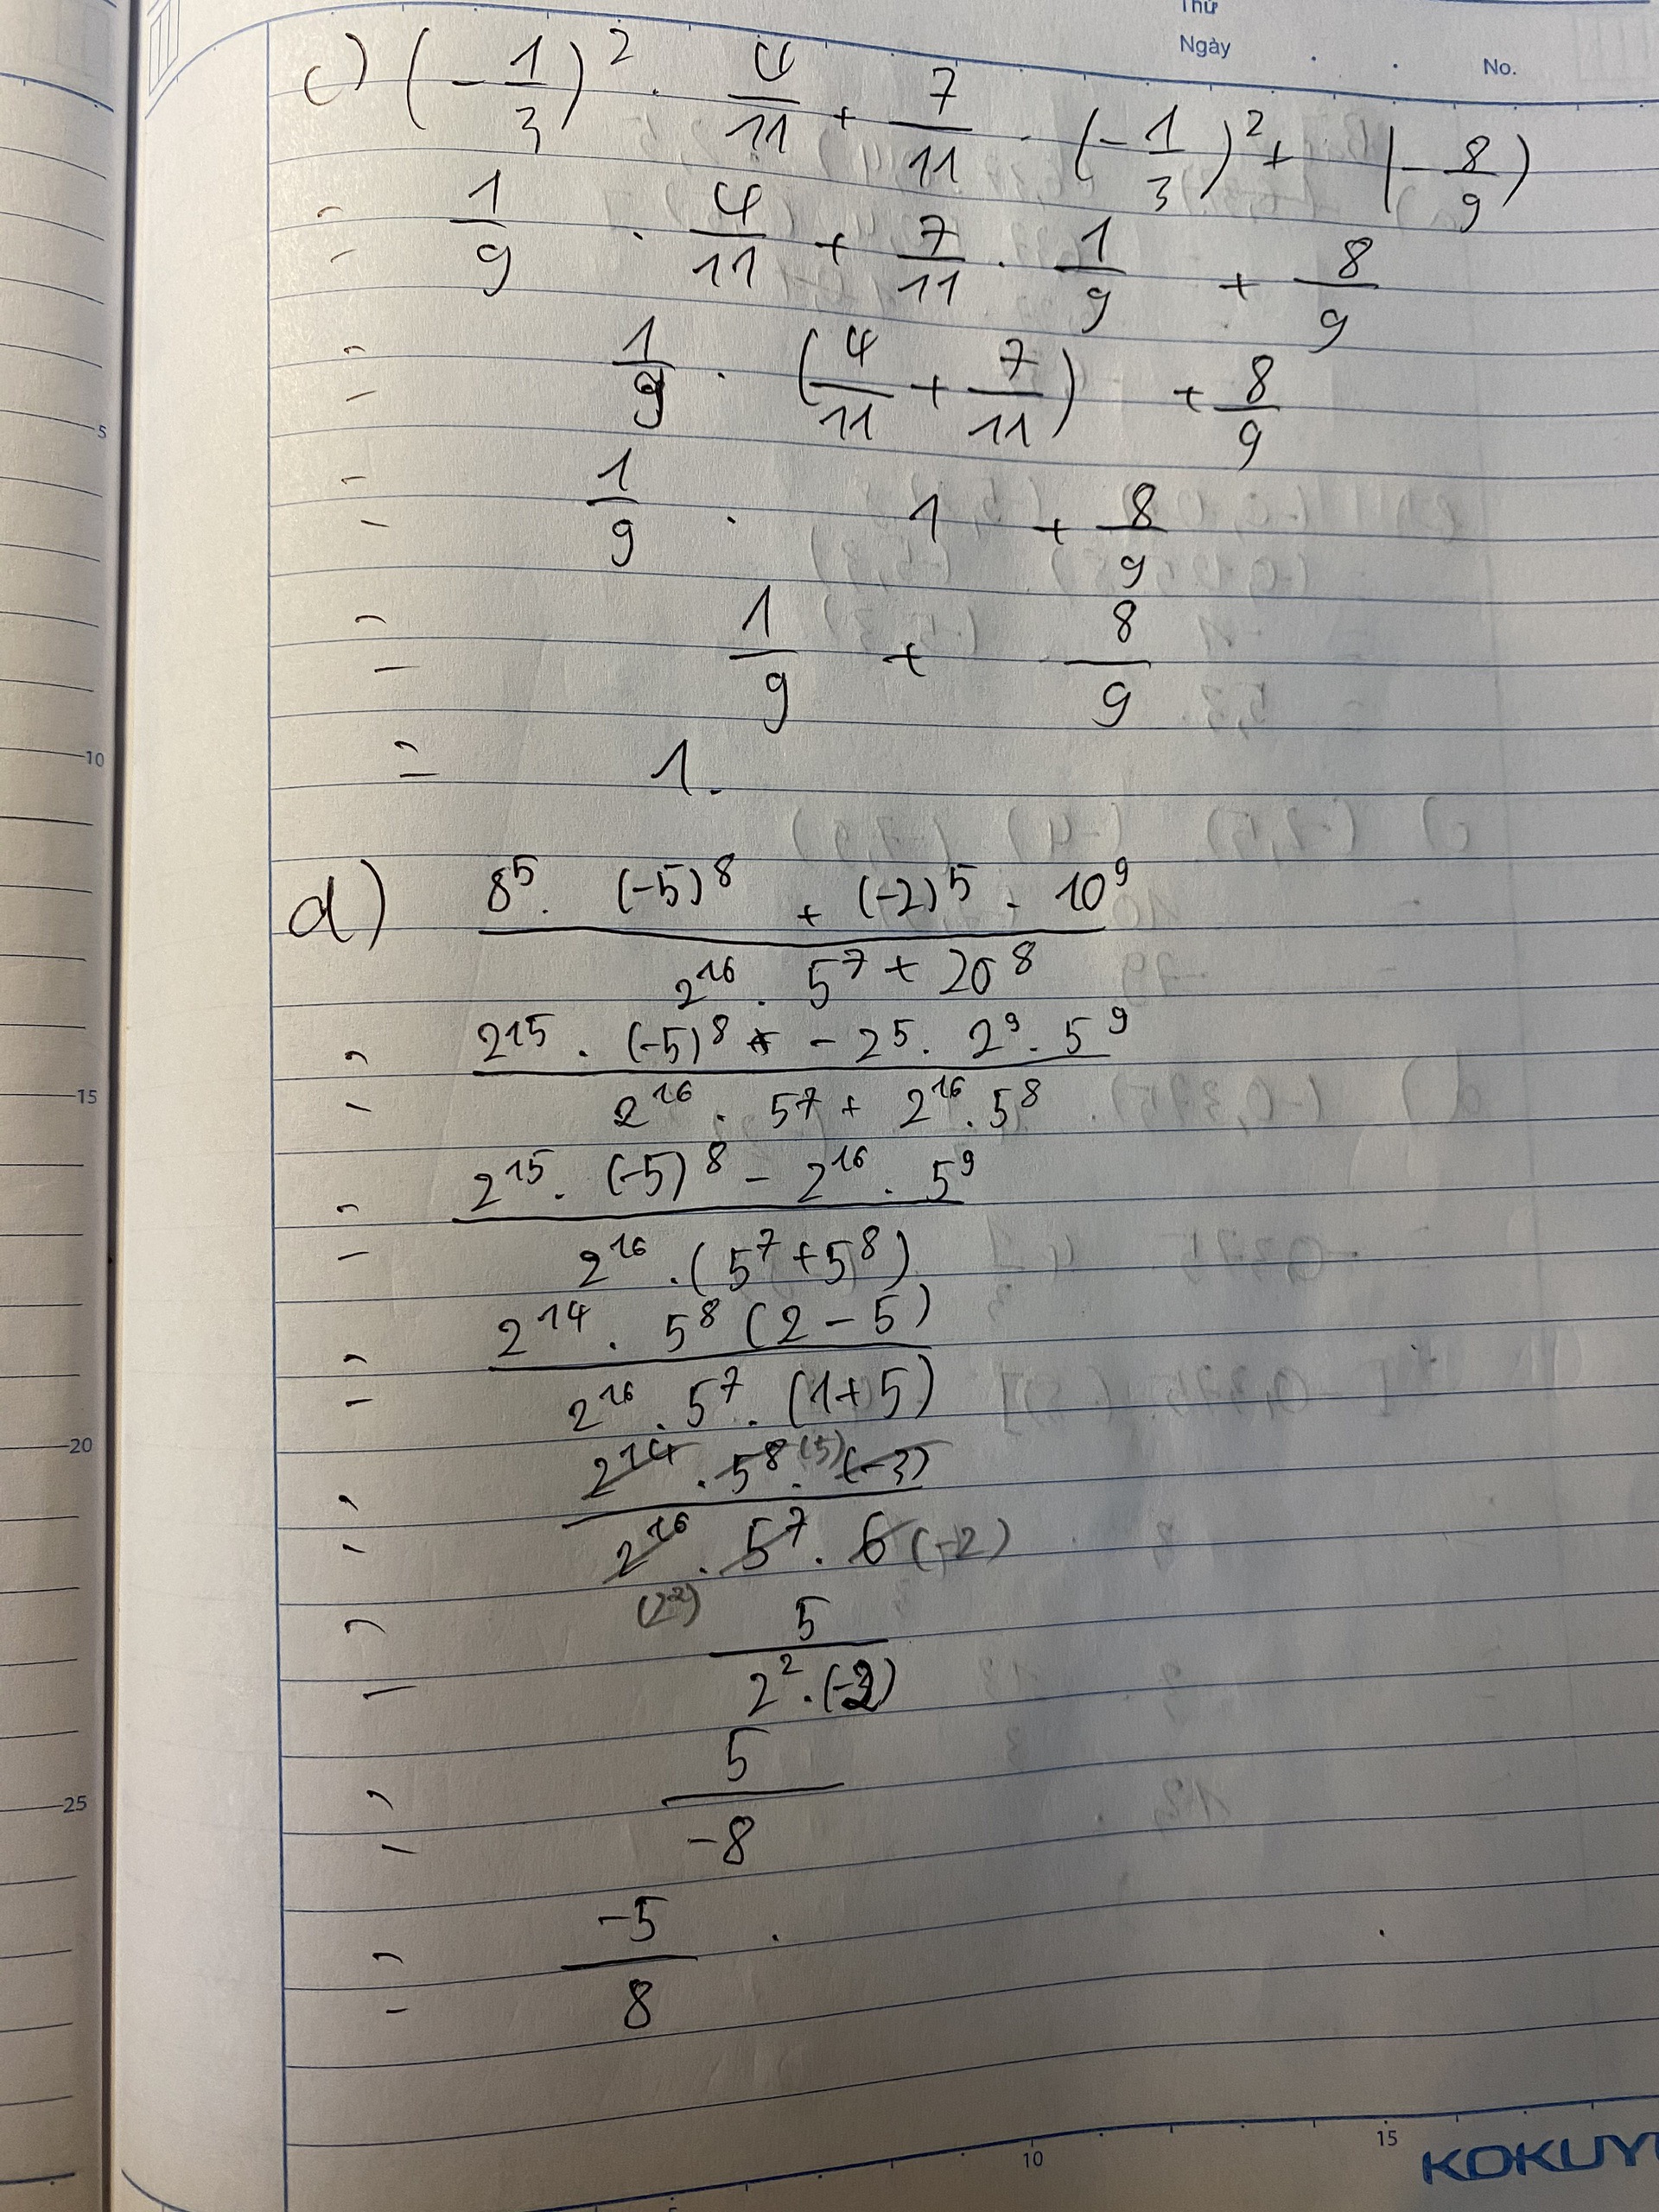 Thứ
Ngày . .
No.
c) (-1/3)² · 4/11 + 7/11 · (-1/3)² + |-8/9)
= 1/9 · 4/11 + 7/11 · 1/9 + 8/9
= 1/9 · (4/11 + 7/11) + 8/9
= 1/9 · 1 + 8/9
= 1/9 + 8/9
= 1.
d) 8⁵ · (-5)⁸ + (-2)⁵ · 10⁹ / 2¹⁶ · 5⁷ + 20⁸
= 2¹⁵ · (-5)⁸ + - 2⁵ · 2⁹ · 5⁹ / 2¹⁶ · 5⁷ + 2¹⁶ · 5⁸
= 2¹⁵ · (-5)⁸ - 2¹⁶ · 5⁹ / 2¹⁶ · (5⁷ + 5⁸)
= 2¹⁴ · 5⁸ (2 - 5) / 2¹⁶ · 5⁷ · (1 + 5)
= 2¹⁴ · 5⁸ · (5) (-3) / 2¹⁶ · 5⁷ · 6 (-2)
(2²)
= 5 / 2² · (-2)
= 5 / -8
= -5 / 8 .
5
10
15
20
25
5
10
15
KOKUY